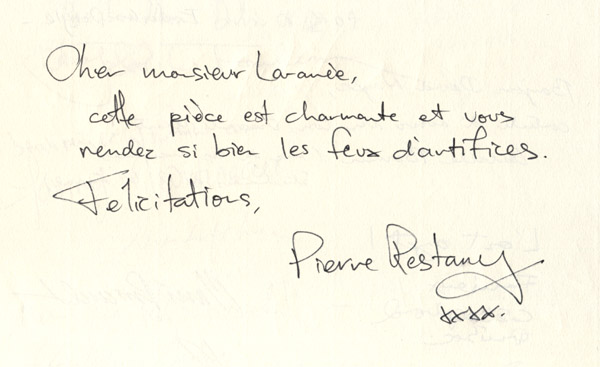 Cher monsieur Laramée,
cette pièce est charmante et vous
rendez si bien les feux d'artifices.
Félicitations,
Pierre Restany
xxxx.